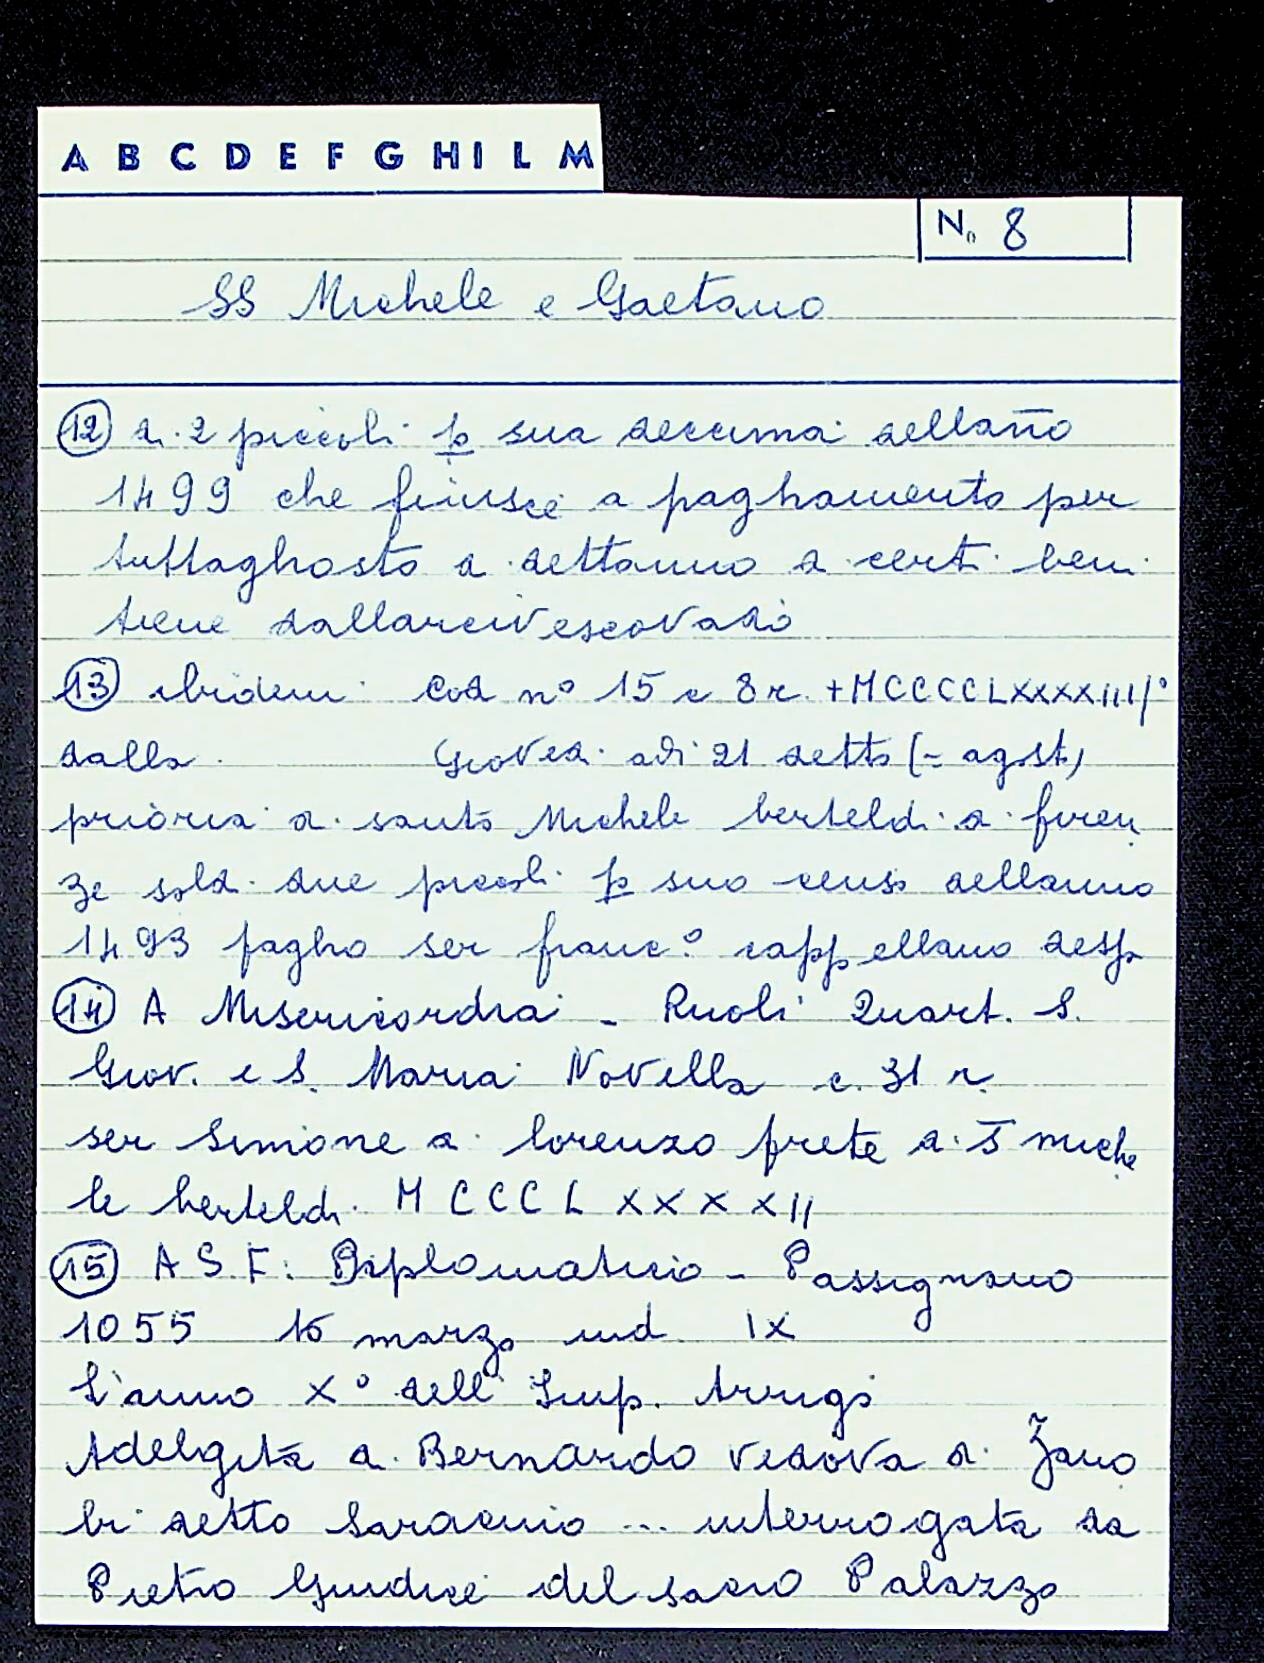 A B C D E F G H I L M
N. 8
SS Michele e Gaetano
(12) d. 2 piccioli p sua decima dellaño
1499 che finisce a paghamento per
tuttaghosto di dettanno di certi beni
tiene dallarcivescovado
(13) ibidem cod n° 15 c 8 r. +MCCCCLXXXXIII/°
dalla Giovedi adi 21 detto (= agost)
prioria di santo Michele berteldi di firen
ze soldi due piccoli p suo censo dellanno
1493 pagho ser franc.° cappellano desp
(14) A Misericordia - Ruoli Quart. S.
Giov. e S. Maria Novella c. 31 r
ser Simone di lorenzo prete di S miche
le berteldi. M C C C L X X X X II
(15) A S F: Diplomatico - Passignano
1055 16 marzo ind. IX
L'anno X° dell' Imp. Arrigo
Adelgita di Bernardo vedova di Zano
bi detto Saracino ... interrogata da
Pietro Giudice del sacro Palazzo